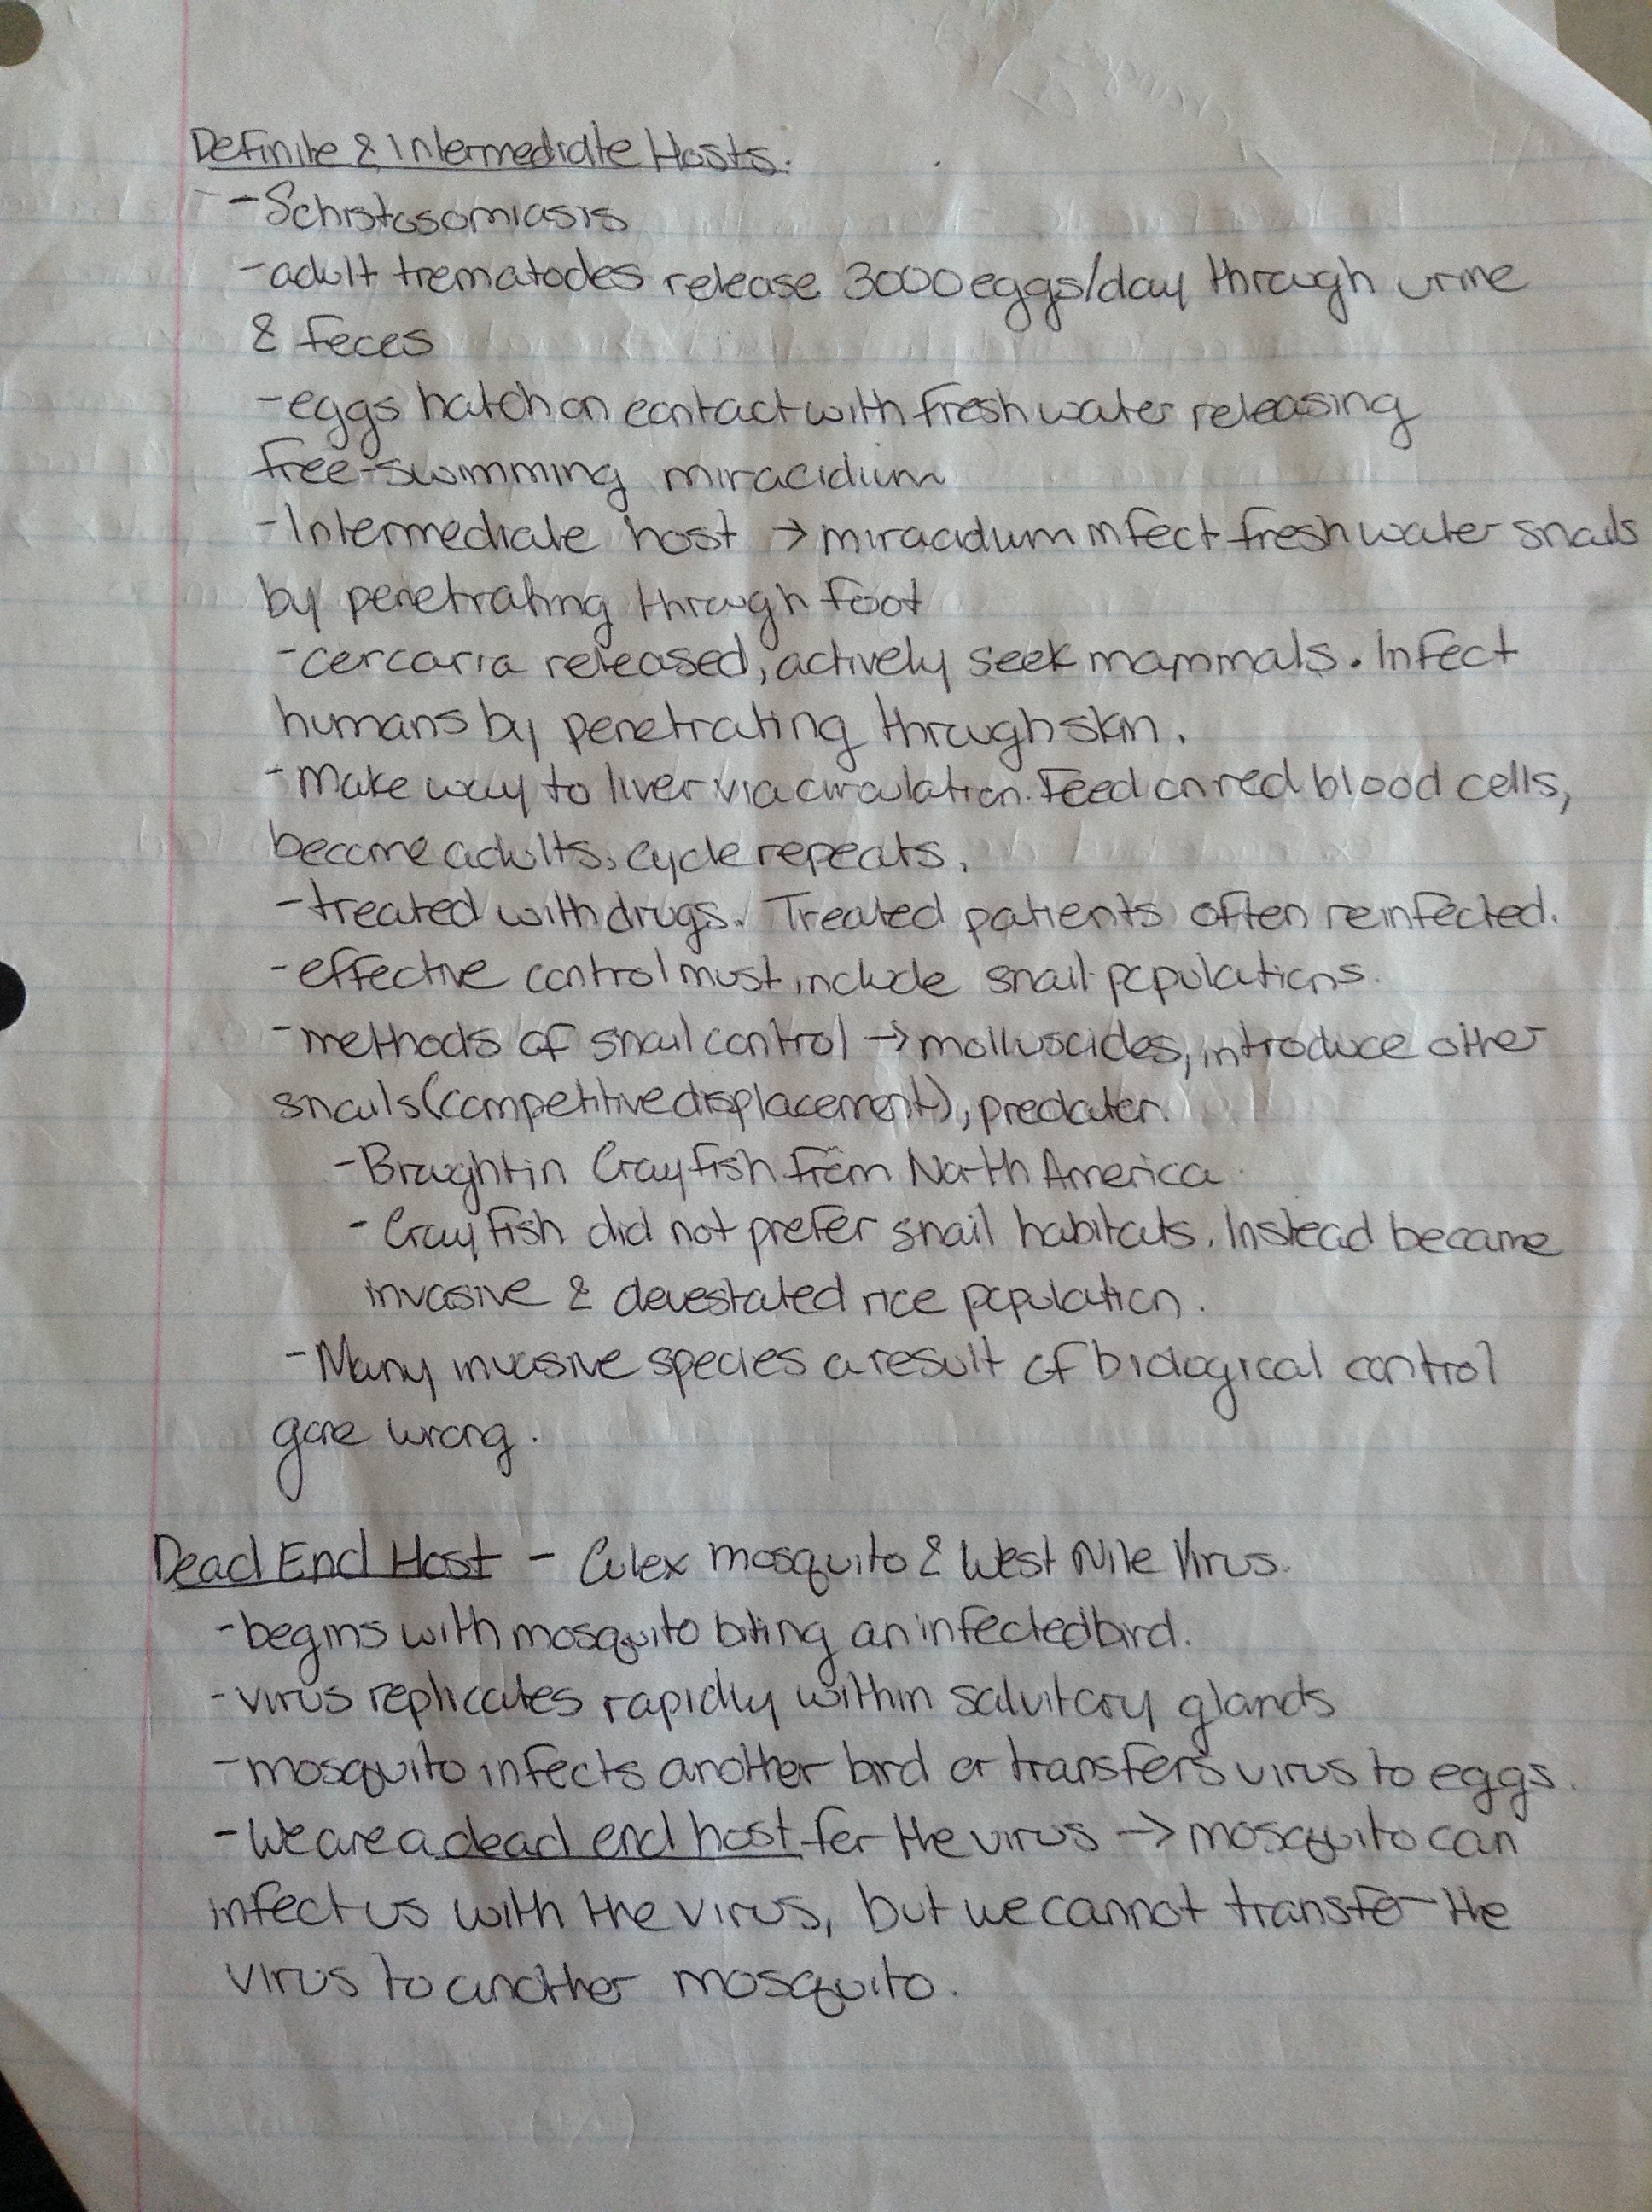 Definite & Intermediate Hosts.
- Schistosomiasis
- adult trematodes release 3000 eggs/day through urine
& feces
- eggs hatch on contact with fresh water releasing
free-swimming miracidium
- Intermediate host → miracidium infect fresh water snails
by penetrating through foot
- cercaria released, actively seek mammals. Infect
humans by penetrating through skin.
- Make way to liver via circulation. Feed on red blood cells,
become adults, cycle repeats.
- treated with drugs. Treated patients often reinfected.
- effective control must include snail populations.
- methods of snail control → molluscides, introduce other
snails (competitive displacement), predator.
- Brought in Crayfish from North America
- Crayfish did not prefer snail habitats. Instead became
invasive & devestated rice population.
- Many invasive species a result of biological control
gone wrong.
Dead End Host - Culex mosquito & West Nile Virus.
- begins with mosquito biting an infected bird.
- virus replicates rapidly within salvitory glands
- mosquito infects another bird or transfers virus to eggs.
- We are a dead end host for the virus → mosquito can
infect us with the virus, but we cannot transfer the
virus to another mosquito.